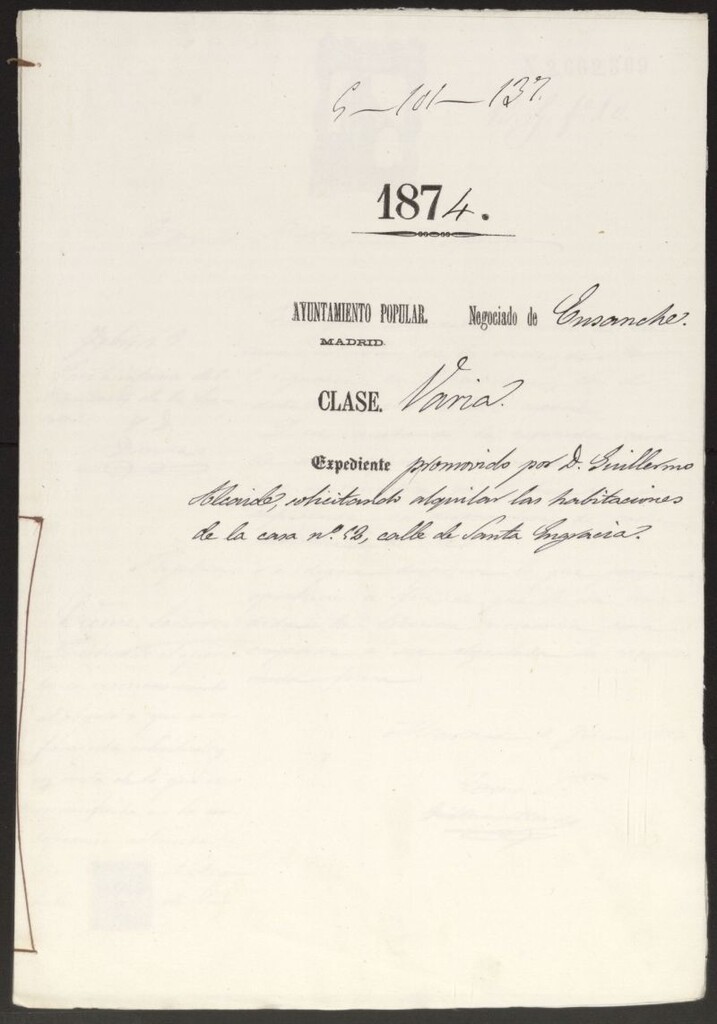 5-101-137.
1874.
AYUNTAMIENTO POPULAR. Negociado de Ensanche.
MADRID.
CLASE. Varia.
Expediente promovido por D. Guillermo
Alcaide, solicitando alquilar las habitaciones
de la casa nº 52, calle de Santa Engracia.